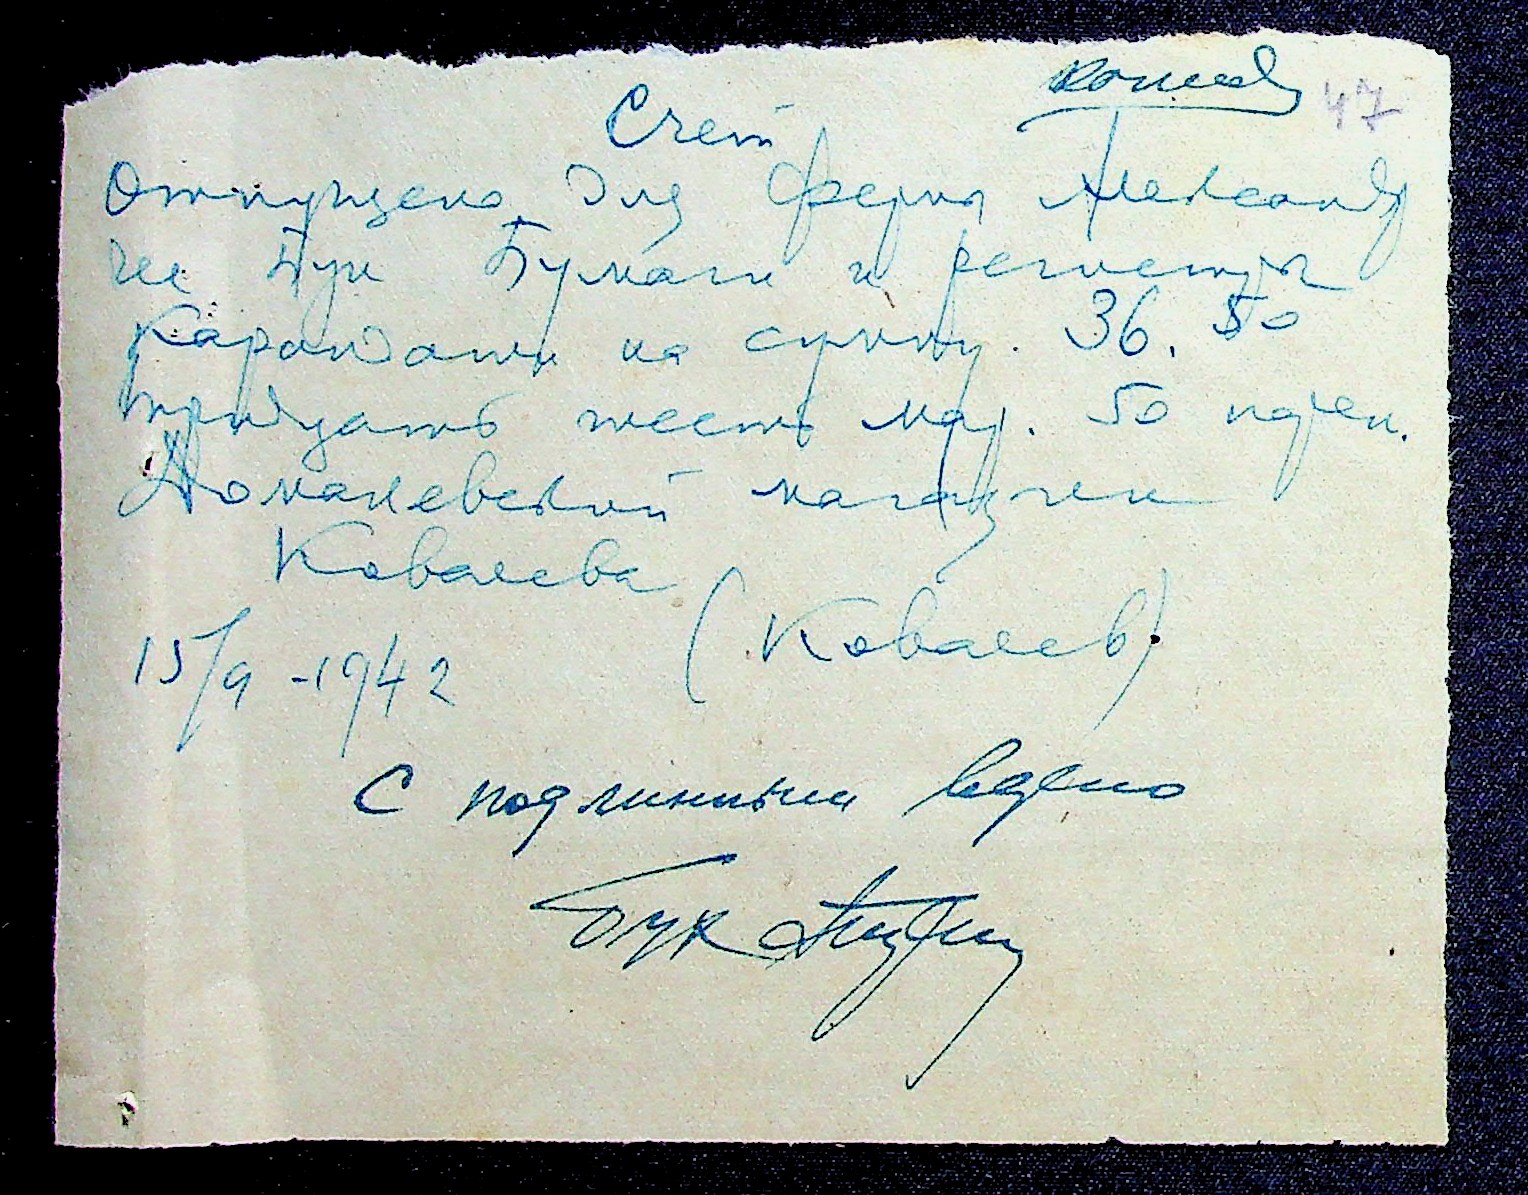 копия 47
Счет
Отпущено для фермы Александр
Бук Бумаги и регистры
Карандаши на сумму. 36.50
тридцать шесть мар. 50 пфен.
Доманевский магазин
Ковалева
(Ковалев)
15/9 -1942
С подлинным верно
Бук